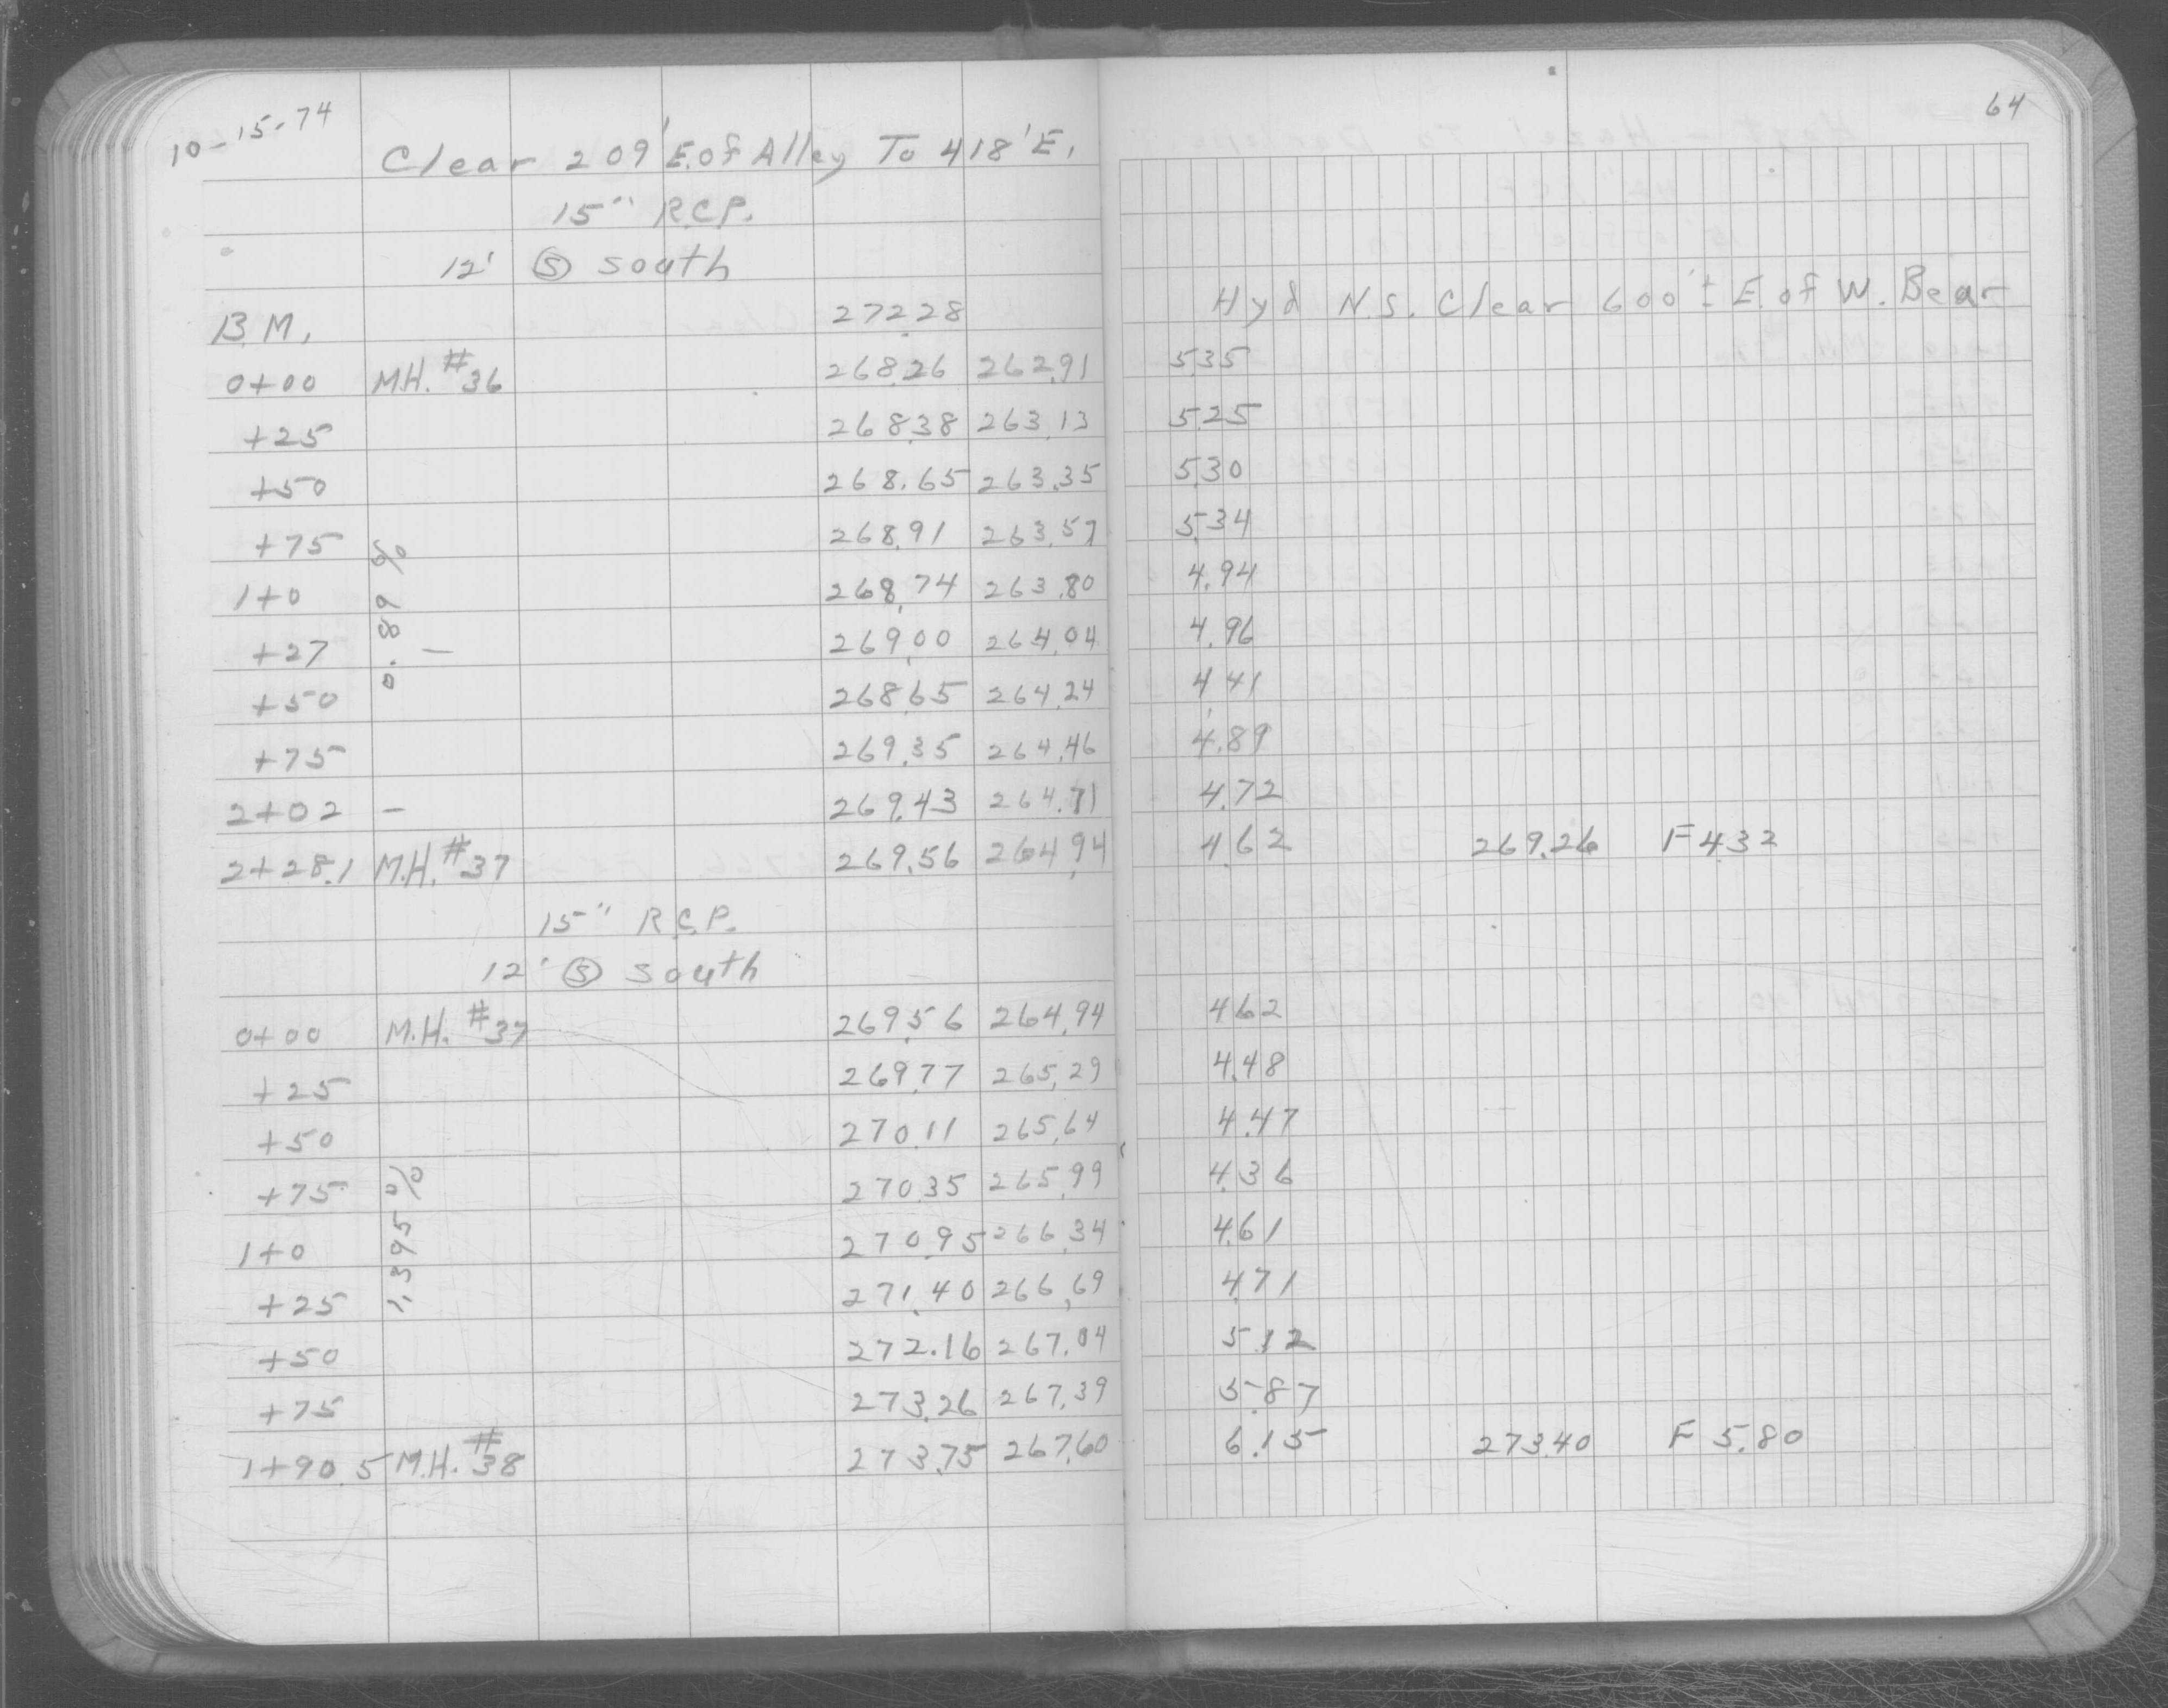 10-15-74
64
Clear 209' E. of Alley To 418' E.
15" R.C.P.
12' Ⓢ South
B.M. 272.28 Hyd N.S. Clear 600' ± E. of W. Bear
0+00 M.H. #36 268.26 262.91 5.35
+25 268.38 263.13 5.25
+50 268.65 263.35 5.30
+75 268.91 263.57 5.34
1+0 268.74 263.80 4.94
0.89 %
+27 — 269.00 264.04 4.96
+50 268.65 264.24 4.41
+75 269.35 264.46 4.89
2+02 — 269.43 264.71 4.72
2+28.1 M.H. #37 269.56 264.94 4.62 269.26 F 4.32
15" R.C.P.
12' Ⓢ South
0+00 M.H. #37 269.56 264.94 4.62
+25 269.77 265.29 4.48
+50 270.11 265.64 4.47
+75 270.35 265.99 4.36
1+0 270.95 266.34 4.61
1.395 %
+25 271.40 266.69 4.71
+50 272.16 267.04 5.12
+75 273.26 267.39 5.87
1+90.5 M.H. #38 273.75 267.60 6.15 273.40 F 5.80